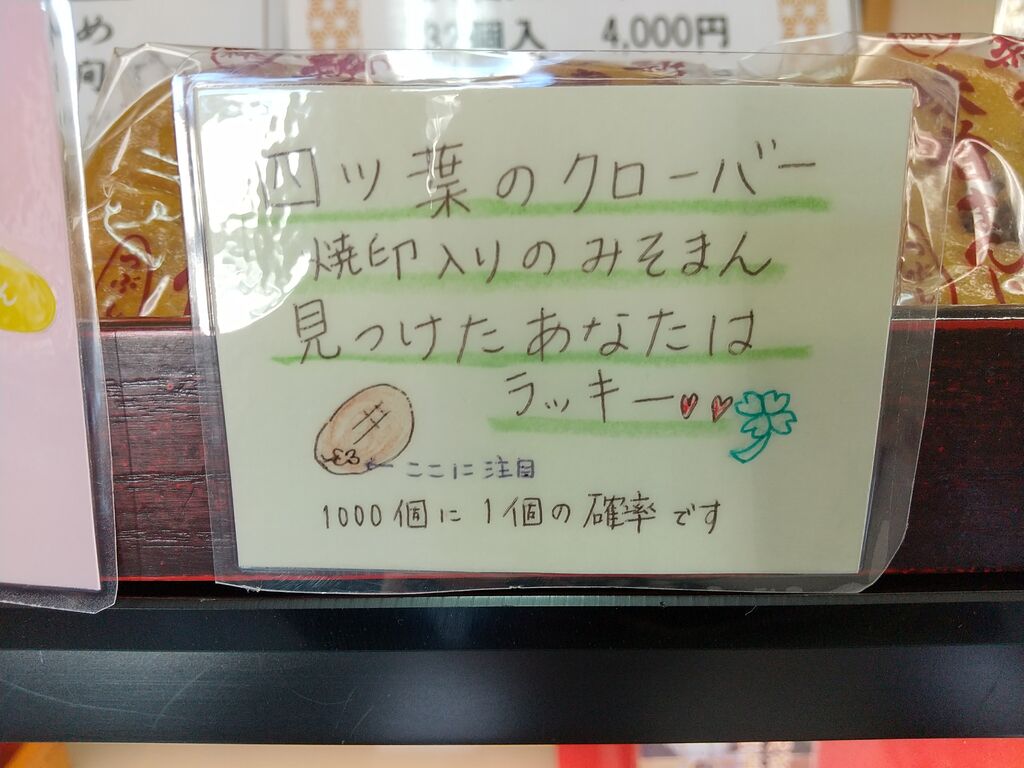 め
向
32個入 4,000円
四ツ葉のクローバー
焼印入りのみそまん
見つけたあなたは
ラッキー
←ここに注目
1000個に1個の確率です
つぶ
ん